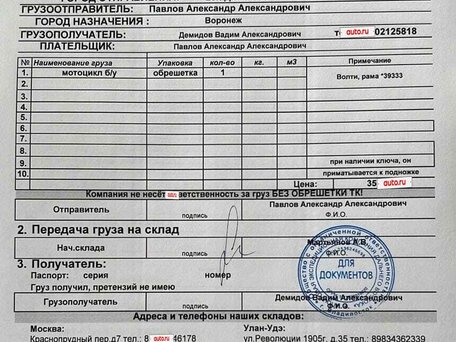 ГРУЗООТПРАВИТЕЛЬ: Павлов Александр Александрович
ГОРОД НАЗНАЧЕНИЯ : Воронеж
ГРУЗОПОЛУЧАТЕЛЬ: Демидов Вадим Александрович т auto.ru 02125818
ПЛАТЕЛЬЩИК: Павлов Александр Александрович
№ Наименование груза Упаковка кол-во кг. м3 Примечание
1. мотоцикл б/у обрешетка 1 Волти, рама *39333
2.
3.
4.
5.
6.
7.
8.
9. при наличии ключа, он
10. приматывается к подножке
Цена: 35 auto.ru
Компания не несёт ответственность за груз БЕЗ ОБРЕШЕТКИ ТК!
Отправитель Павлов Александр Александрович
подпись Ф.И.О.
2. Передача груза на склад
Нач.склада Мартьянов А.В.
подпись Ф.И.О.
3. Получатель:
Паспорт: серия номер
Груз получил, претензий не имею
ДЛЯ
ДОКУМЕНТОВ
Грузополучатель Демидов Вадим Александрович
подпись Ф.И.О.
Адреса и телефоны наших складов:
Москва: Улан-Удэ:
Краснопрудный пер.д7 тел.: 8 auto.ru 46178 ул.Революции 1905г, д.35 тел.: 89834362339